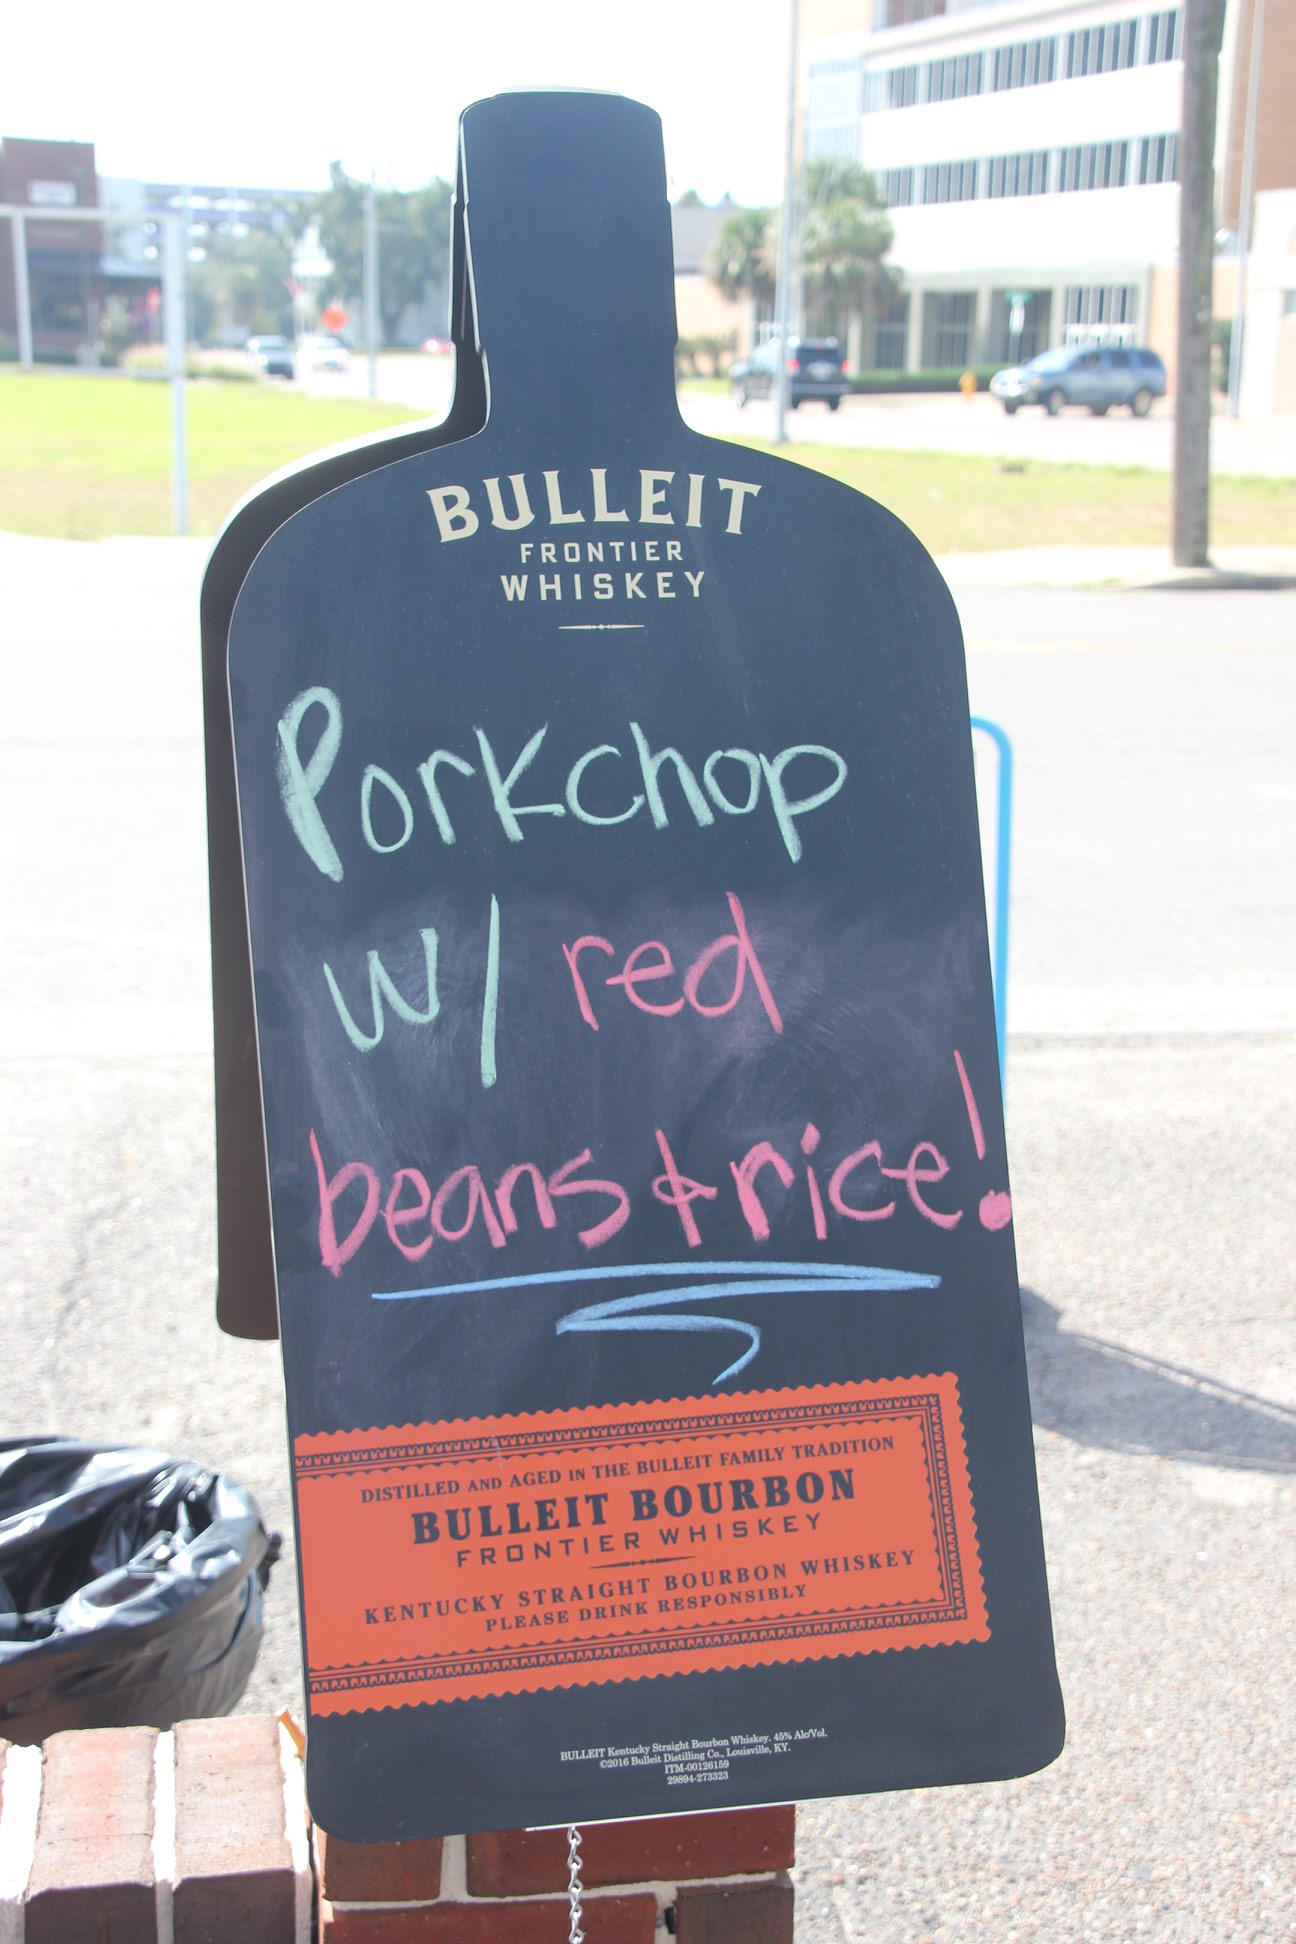 BULLEIT
FRONTIER
WHISKEY
Porkchop
w/ red
beans & rice!
DISTILLED AND AGED IN THE BULLEIT FAMILY TRADITION
BULLEIT BOURBON
FRONTIER WHISKEY
KENTUCKY STRAIGHT BOURBON WHISKEY
PLEASE DRINK RESPONSIBLY
BULLEIT Kentucky Straight Bourbon Whiskey. 45% Alc/Vol.
©2016 Bulleit Distilling Co., Louisville, KY.
ITM-00126159
29894-273323